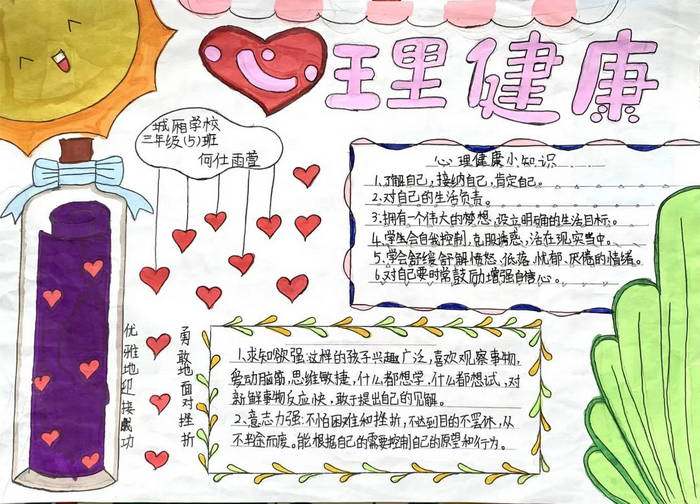 理健康
城厢学校
三年级(5)班
何仕雨萱
心理健康小知识
1.了解自己，接纳自己，肯定自己。
2.对自己的生活负责。
3.拥有一个伟大的梦想，设立明确的生活目标。
4.学生会自我控制，克服满惑，活在现实当中。
5.学会舒缓舒解愤怒、低落、忧郁、厌倦的情绪。
6.对自己要时常鼓励增强自信心。
优雅地迎接成功
勇敢地面对挫折
1、求知欲强：这样的孩子兴趣广泛，喜欢观察事物，
爱动脑筋，思维敏捷，什么都想学，什么都想试，对
新鲜事物反应快，敢于提出自己的见解。
2、意志力强：不怕困难和挫折，不达到目的不罢休，从
不半途而废。能根据自己的需要控制自己的原望和行为。